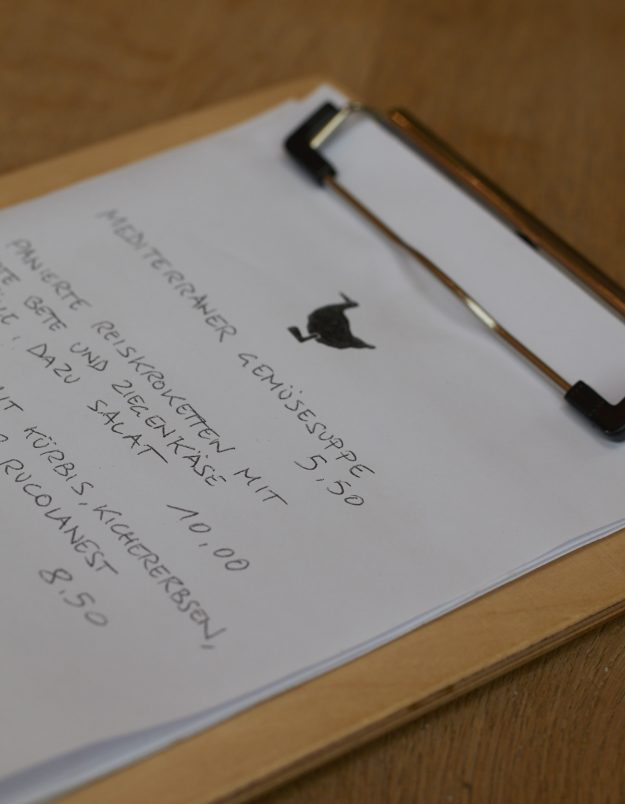 MEDITERRANER GEMÜSESUPPE
5,50
PANIERTE REISKROKETTEN MIT
BETE UND ZIEGENKÄSE
DAZU SALAT
10,00
MIT KÜRBIS, KICHERERBSEN,
RUCOLANEST
8,50